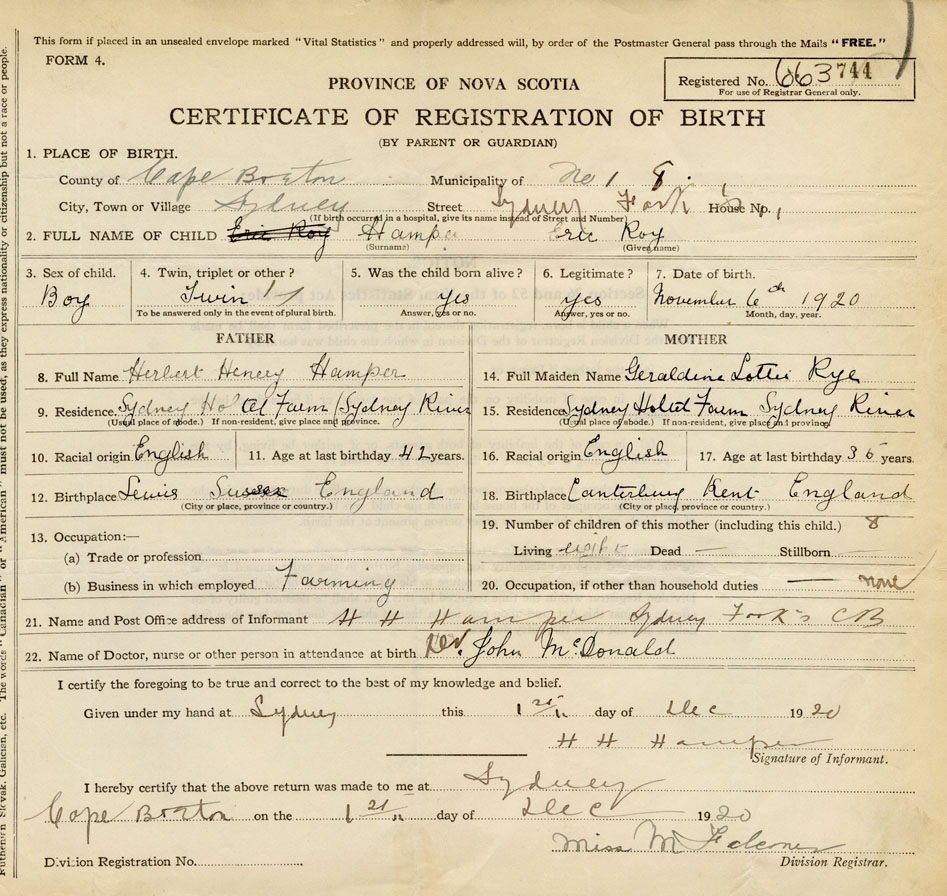 This form if placed in an unsealed envelope marked "Vital Statistics" and properly addressed will, by order of the Postmaster General pass through the Mails "FREE."
FORM 4.
Registered No. 663744
For use of Registrar General only.
PROVINCE OF NOVA SCOTIA
CERTIFICATE OF REGISTRATION OF BIRTH
(BY PARENT OR GUARDIAN)
1. PLACE OF BIRTH.
County of Cape Breton Municipality of No 1 8.
City, Town or Village Sydney Street Sydney Fork's House No.
(If birth occurred in a hospital, give its name instead of Street and Number)
2. FULL NAME OF CHILD Eric Roy Hamper Eric Roy
(Surname) (Given name)
3. Sex of child. 4. Twin, triplet or other? 5. Was the child born alive? 6. Legitimate? 7. Date of birth.
Boy Twin 1 yes yes November 6th 1920
To be answered only in the event of plural birth. Answer, yes or no. Answer, yes or no. Month, day, year.
FATHER
8. Full Name Herbert Henery Hamper
9. Residence Sydney Hotel Farm Sydney River
(Usual place of abode.) If non-resident, give place and province.
10. Racial origin English 11. Age at last birthday 42 years.
12. Birthplace Lewis Sussex England
(City or place, province or country.)
13. Occupation:—
(a) Trade or profession
(b) Business in which employed Farming
MOTHER
14. Full Maiden Name Geraldine Lottie Rye
15. Residence Sydney Hotel Farm Sydney River
(Usual place of abode.) If non-resident, give place and province
16. Racial origin English 17. Age at last birthday 36 years.
18. Birthplace Canterbury Kent England
(City or place, province or country.)
19. Number of children of this mother (including this child.) 8
Living eight Dead — Stillborn —
20. Occupation, if other than household duties — none
21. Name and Post Office address of Informant H H Hamper Sydney Fork's CB
22. Name of Doctor, nurse or other person in attendance at birth. John McDonald
I certify the foregoing to be true and correct to the best of my knowledge and belief.
Given under my hand at Sydney this 1st day of Dec 1920
H H Hamper
Signature of Informant.
I hereby certify that the above return was made to me at Sydney
Cape Breton on the 1st day of Dec 1920
Miss M Falconer
Division Registration No. Division Registrar.